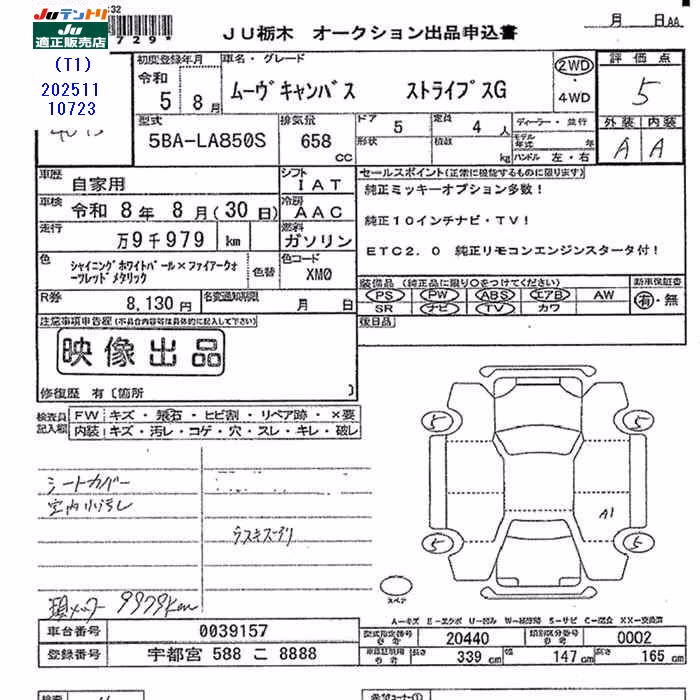 JUテントリ
JU 適正販売店
(T1)
202511
10723
32
729*
JU栃木 オークション出品申込書
月 日AA
初度登録年月
令和
5 8月
車名・グレード
ムーヴキャンバス ストライプスG
2WD
・
4WD
評価点
5
型式
5BA-LA850S
排気量
658
cc
ドア
5
定員
4人
形状
積数
kg
ディーラー・並行
モデル年式 年
ハンドル 左・右
外装 内装
A A
車歴
自家用
シフト
IAT
車検
令和 8年 8月(30日)
冷房
AAC
走行
万9千979 km
燃料
ガソリン
色
シャイニングホワイトパール×ファイアークォーツレッドメタリック
色替
色コード
XM0
R券
8,130円
名変通知期限
月 日
セールスポイント(正常に機能するものに限ります)
純正ミッキーオプション多数!
純正10インチナビ・TV!
ETC2.0 純正リモコンエンジンスタータ付!
装備品 (純正品に限り○をつけてください)
PS PW ABS エアB AW
SR ナビ TV カワ
新車保証書
有・無
注意事項申告欄(不具合内容等は具体的に記入して下さい)
映像出品
修復歴 有〔箇所 〕
後日品
検査員記入欄
FW キズ・飛石・ヒビ割・リペア跡・×要
内装 キズ・汚レ・コゲ・穴・スレ・キレ・破レ
シートカバー
室内小汚レ
ラスキズ
現メーター 9979km
5 5
A1
5 5
スペア
A-キズ E-エクボ U-凹み W-補修跡 S-サビ C-腐食 XX-交換済
車台番号 0039157
登録番号 宇都宮 588 こ 8888
型式指定番号 参考 20440
類別区分番号 参考 0002
車両証明用 参考
長さ 339cm
幅 147cm
高さ 165cm
検査
希望コーナー①